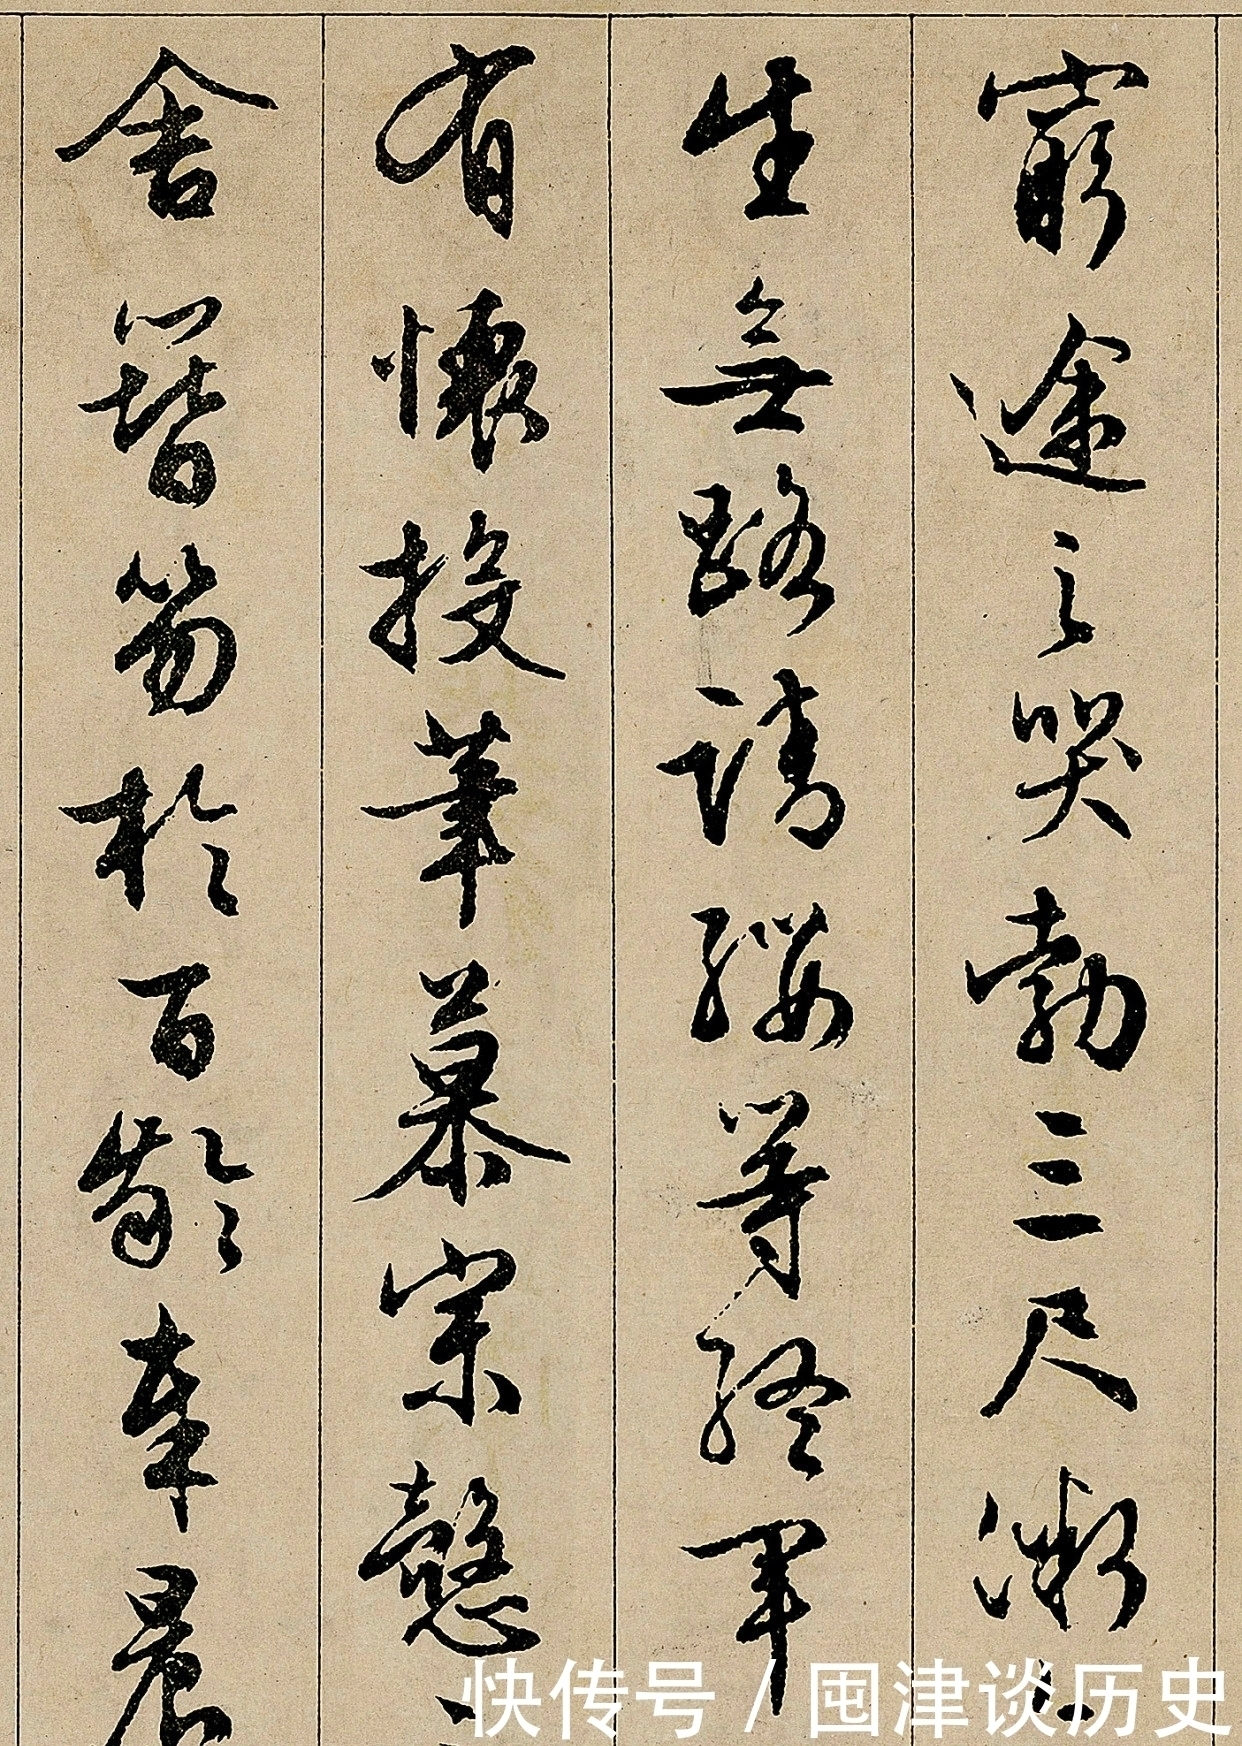 窮途之哭勃三尺微
生無路請纓等終軍
有懷投筆慕宗愨
舍簪笏於百齡奉晨
快传号 / 囤津谈历史